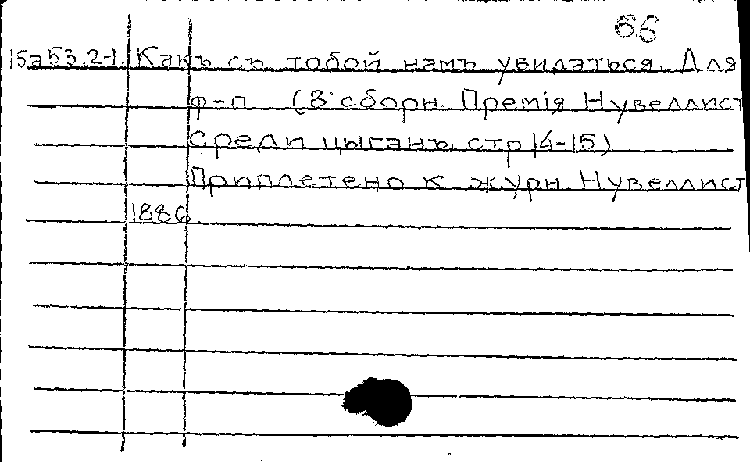 66
15а53.2-1. Какъ съ тобой намъ увидаться. Для
ф-п (В сборн. Премія Нувеллист
Среди цыганъ стр 14-15)
Приплетено к журн. Нувеллист
1886.